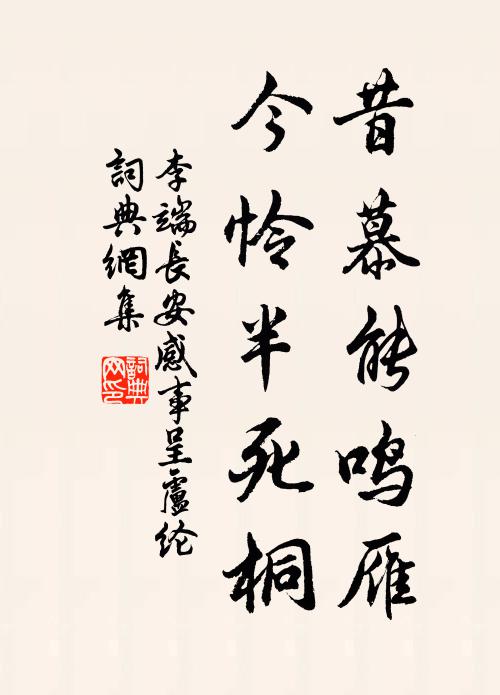 昔慕能鳴雁
今怜半死桐
李端長安感事呈盧纶
詞典網集
詞典網印